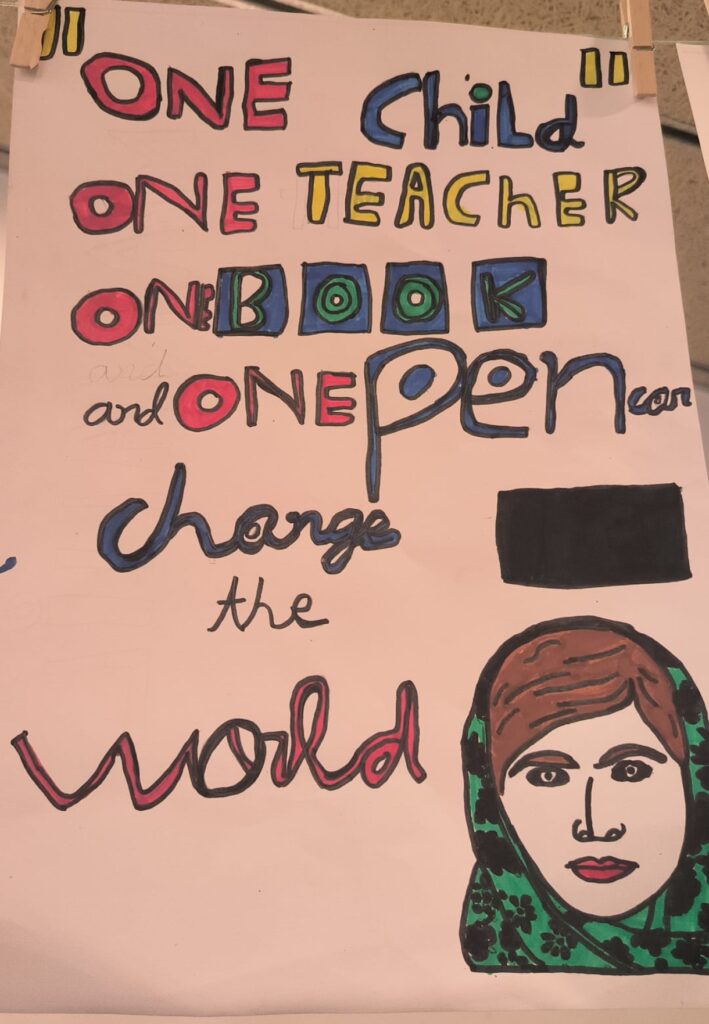 "ONE Child"
ONE TEACHER
ONE BOOK
and ONE Pen can
change
the
world